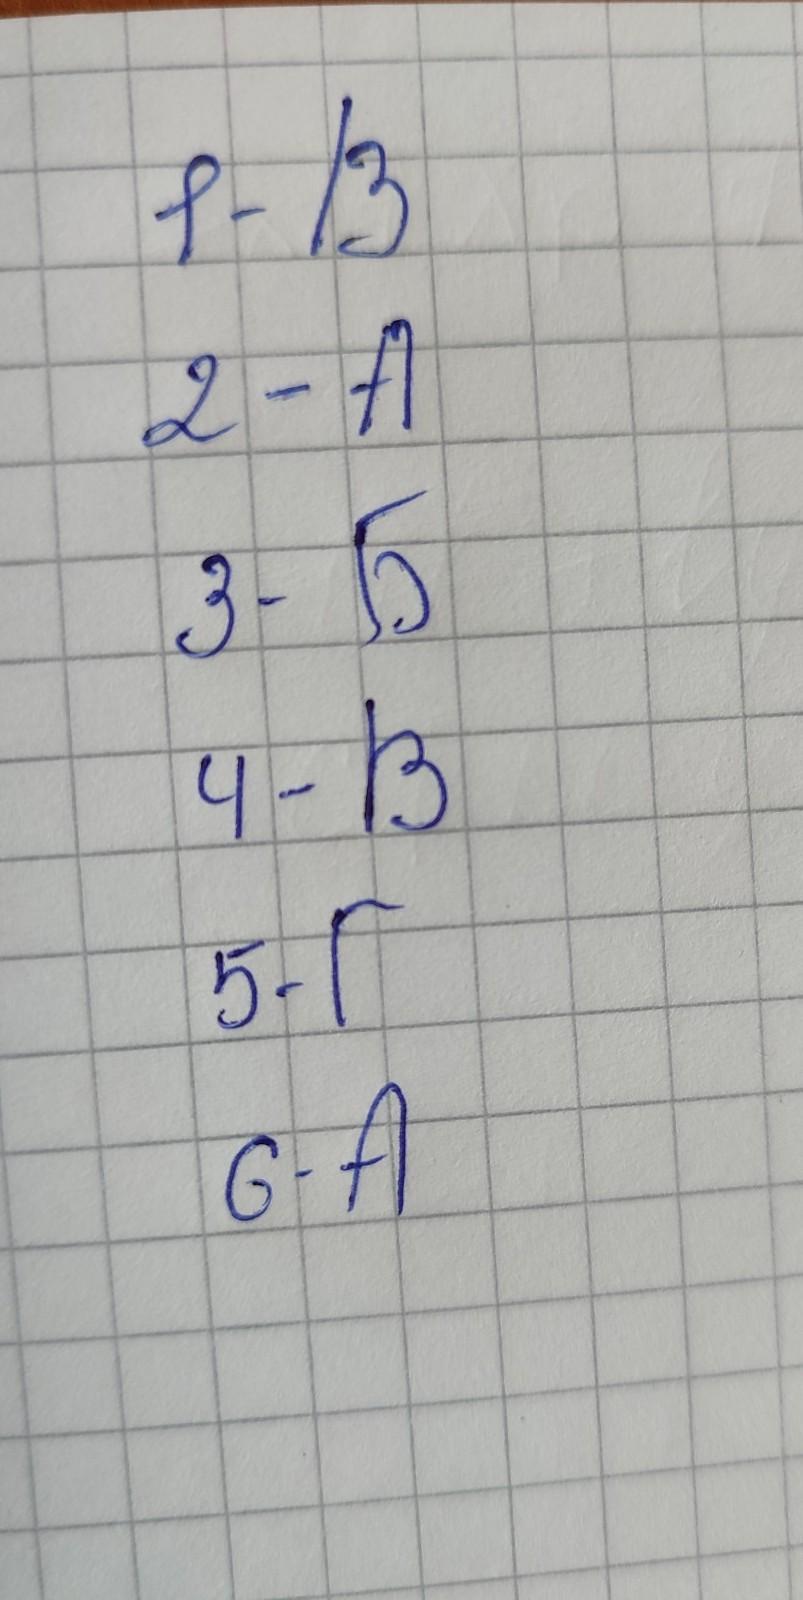 1- В
2 - А
3- Б
4 - В
5 - Г
6 - А